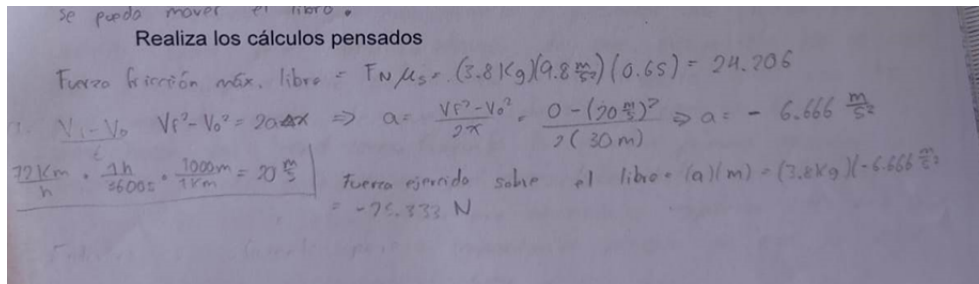 se puedo mover el libro.
Realiza los cálculos pensados
Fuerza fricción máx. libro = FN μs = (3.8 Kg)(9.8 m/s²)(0.65) = 24.206
Vf - Vo / t Vf² - Vo² = 2aΔx ⇒ a = Vf² - Vo² / 2x = 0 - (20 m/s)² / 2(30 m) ⇒ a = - 6.666 m/s²
72 Km / h · 1h / 3600s · 1000m / 1Km = 20 m/s Fuerza ejercida sobre el libro = (a)(m) = (3.8 Kg)(-6.666 m/s²
= -25.333 N